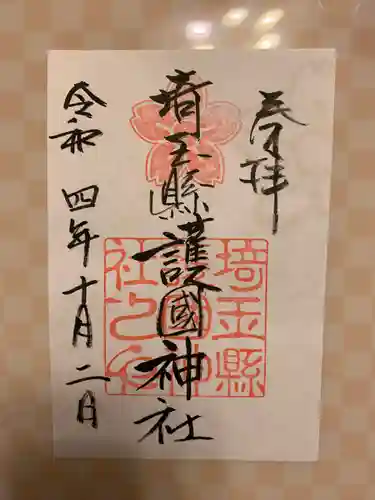 奉拝
埼玉縣護國神社
埼玉縣護國神社之印
令和四年十月二日